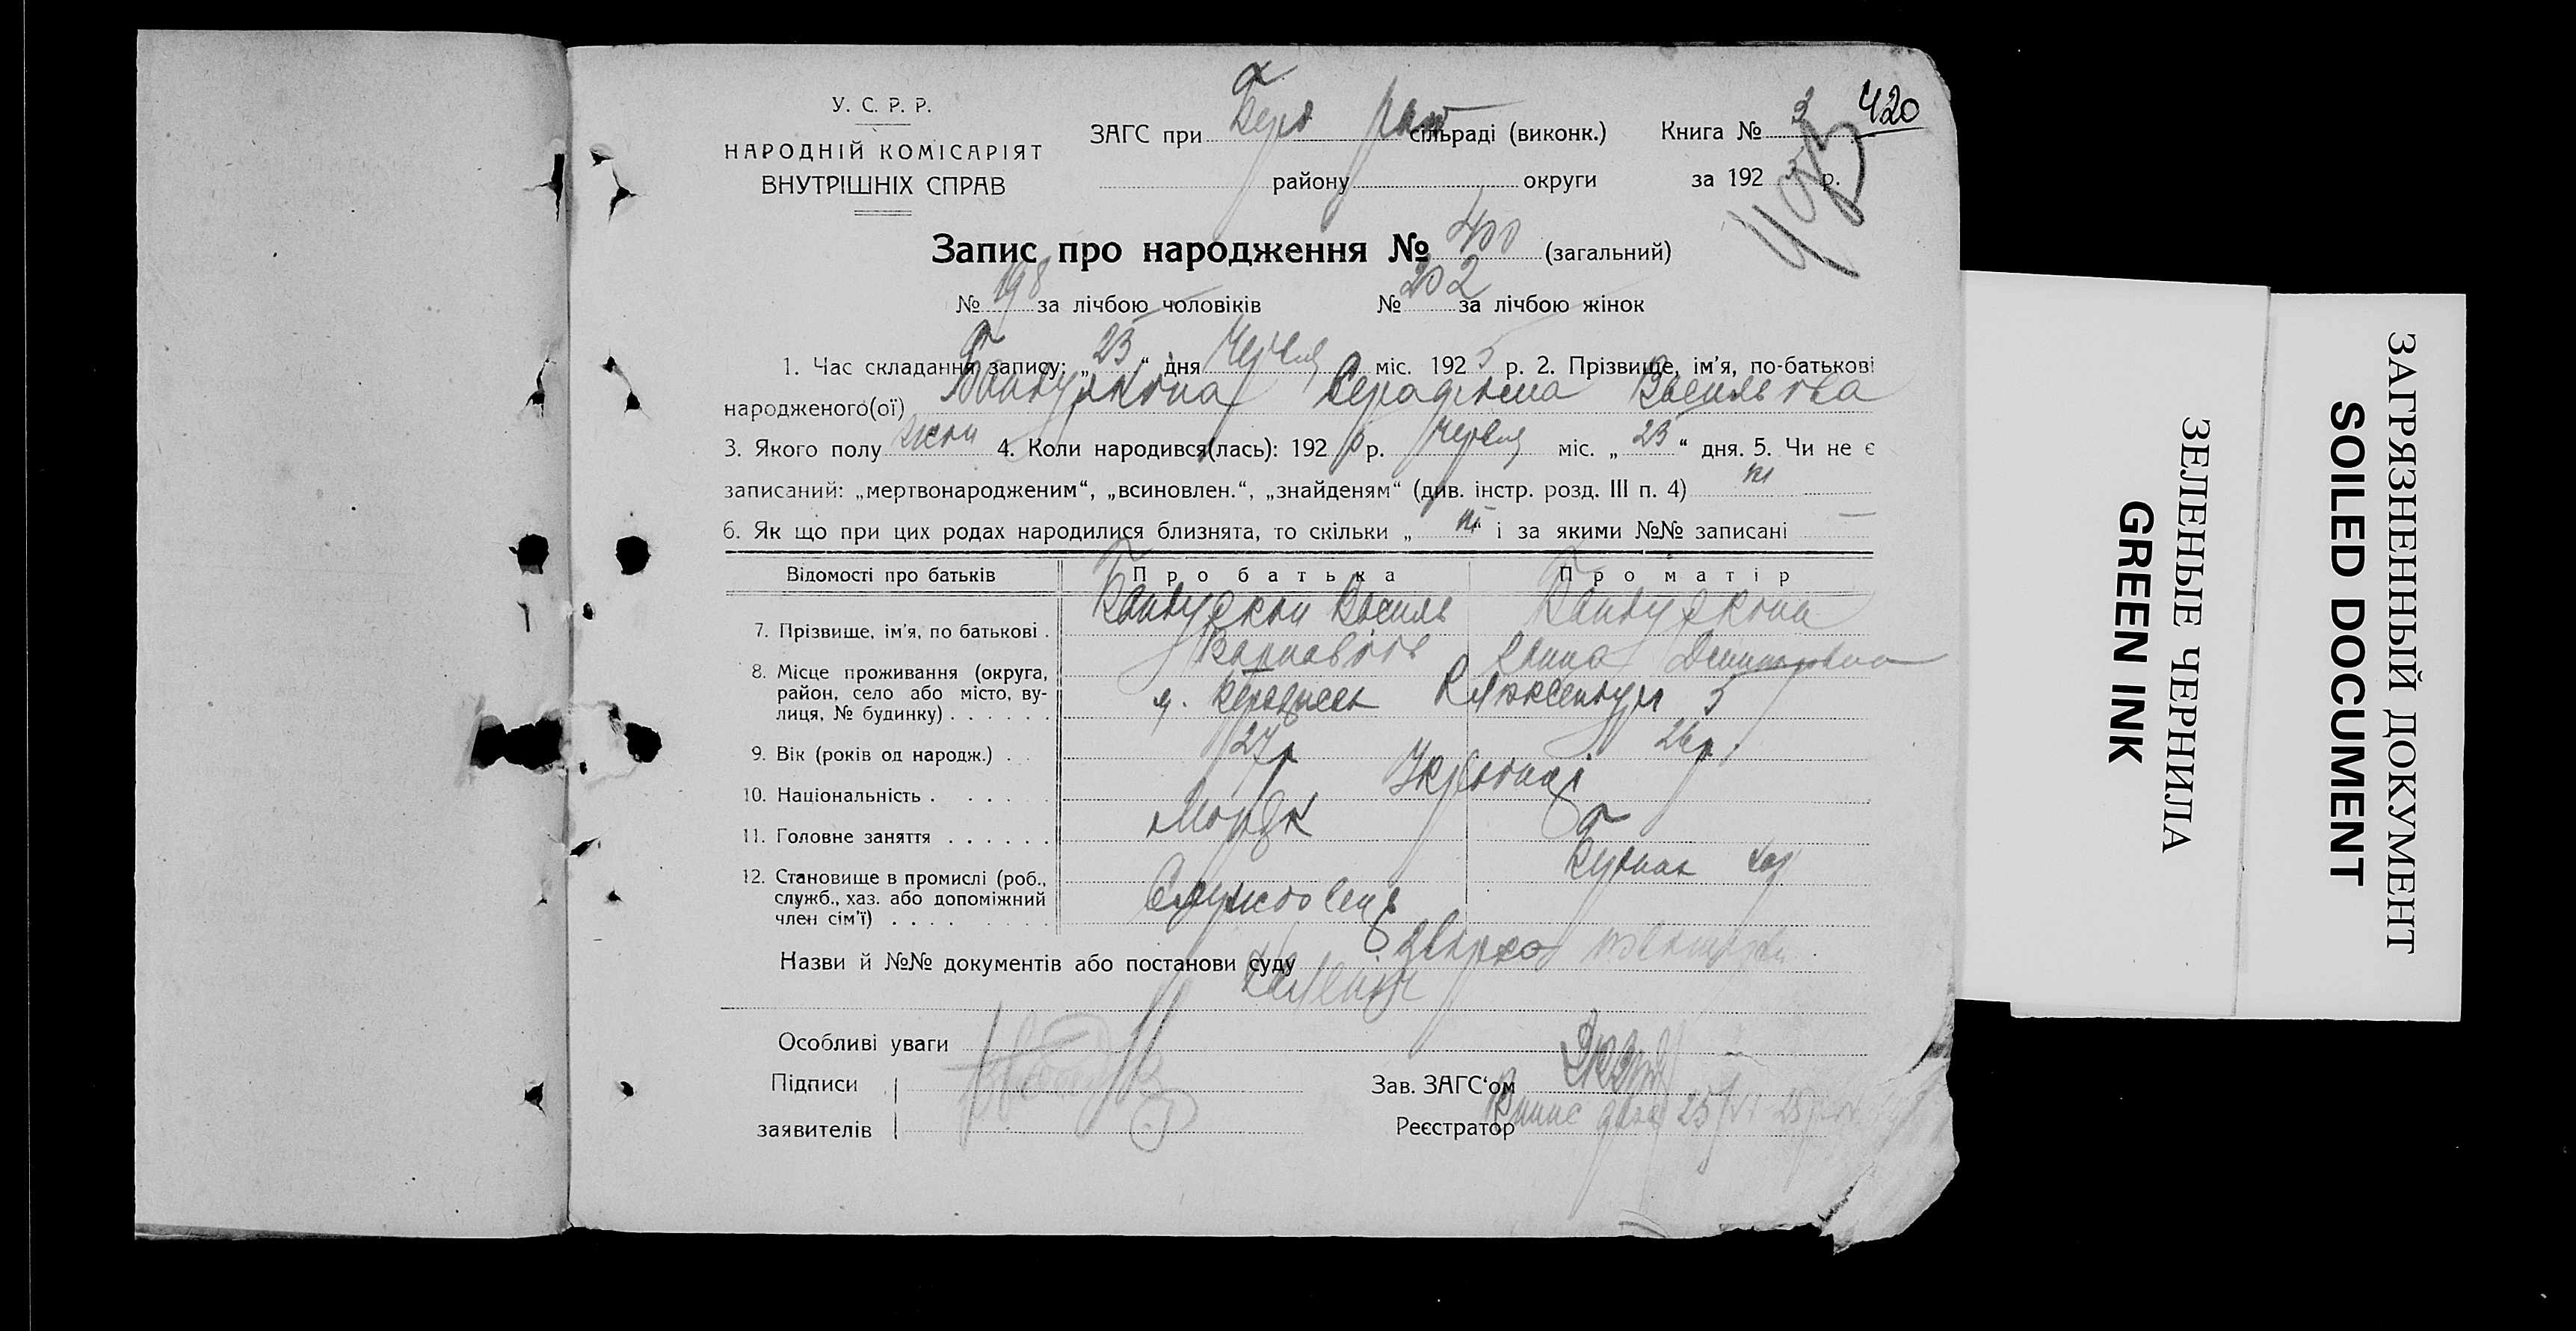 420
У. С. Р. Р.
НАРОДНІЙ КОМІСАРІЯТ
ВНУТРІШНІХ СПРАВ
ЗАГС при Берд рай сільраді (виконк.)
району округи
Книга № 3
за 1925 р.
403
Запис про народження № 400 (загальний)
№ 198 за лічбою чоловіків № 202 за лічбою жінок
1. Час складання запису: „ 23 “ дня Червня міс. 1925 р. 2. Прізвище, ім'я, по-батькові
народженого(ої) Серафима
3. Якого полу жін 4. Коли народився(лась): 192 р. червня міс. „ 23 “ дня. 5. Чи не є
записаний: „мертвонародженим“, „всиновлен.“, „знайденям“ (див. інстр. розд. III п. 4) ні
6. Як що при цих родах народилися близнята, то скільки „ ні “ і за якими №№ записані —
Відомості про батьків Про батька Про матір
7. Прізвище, ім'я, по батькові . Василь
8. Місце проживання (округа, район, село або місто, вулиця, № будинку) . . . . . . м. Бердянськ Р Люксенбург 5
9. Вік (років од народж.) . . 27 р 26 р.
10. Національність . . . . . Українці
11. Головне заняття . . . . . . Моряк
12. Становище в промислі (роб., служб., хаз. або допоміжний член сім'ї) . . . . Службовець
Назви й №№ документів або постанови суду
Особливі уваги
Підписи
заявителів
Зав. ЗАГС‘ом
Реєстратор
ЗЕЛЕНЫЕ ЧЕРНИЛА
GREEN INK
ЗАГРЯЗНЕННЫЙ ДОКУМЕНТ
SOILED DOCUMENT